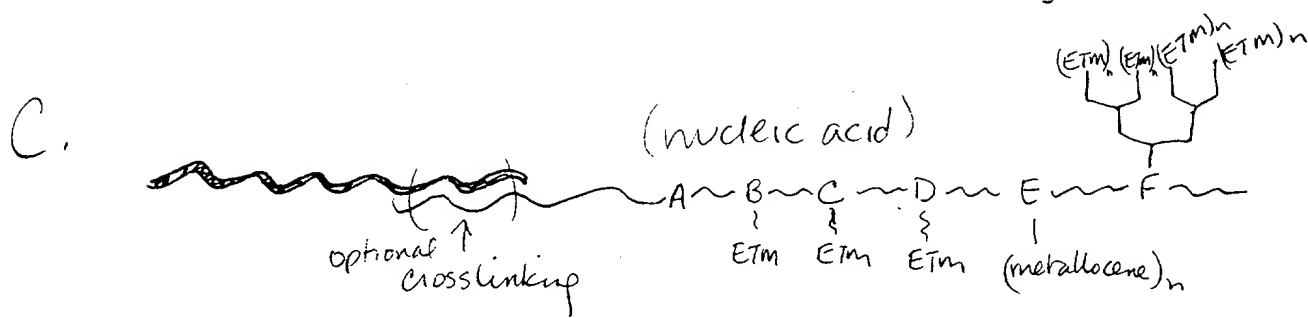 (ETM)n (ETM)n (ETM)n (ETM)n
C.
(nucleic acid)
A B C D E F
optional
crosslinking
ETM ETM ETM (metallocene)n